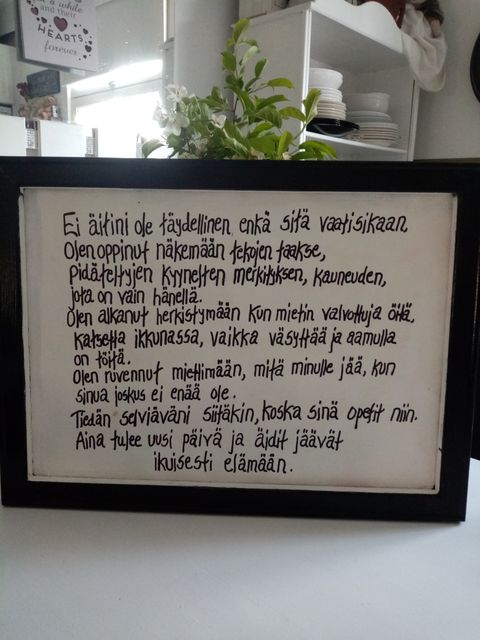 a while
and their
HEARTS
forever
Ei äitini ole täydellinen, enkä sitä vaatisikaan.
Olen oppinut näkemään tekojen taakse,
pidäteltyjen kyynelten merkityksen, kauneuden,
jota on vain hänellä.
Olen alkanut herkistymään kun mietin valvottuja öitä,
katsetta ikkunassa, vaikka väsyttää ja aamulla
on töitä.
Olen ruvennut miettimään, mitä minulle jää, kun
sinua joskus ei enää ole.
Tiedän selviäväni siitäkin, koska sinä opetit niin.
Aina tulee uusi päivä ja äidit jäävät
ikuisesti elämään.